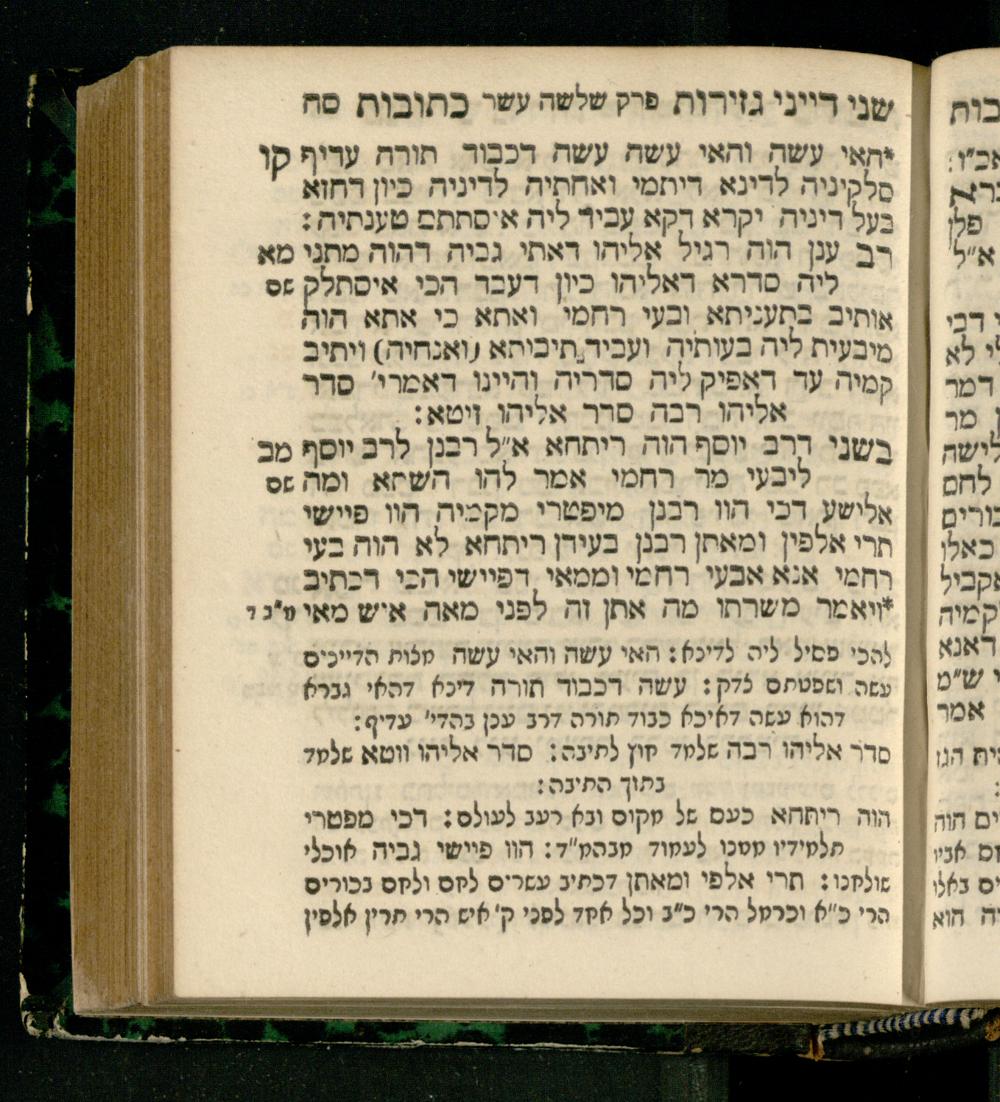 שני דייני גזירות פרק שלשה עשר כתובות סח
*האי עשה והאי עשה עשה דכבוד תורה עדיף קו
סלקיניה לדינא דיתמי ואחתיה לדיניה כיון דחזא
בעל דיניה יקרא דקא עביד ליה איסתתם טענתיה:
רב ענן הוה רגיל אליהו דאתי גביה דהוה מתני מא
ליה סדרא דאליהו כיון דעבד הכי איסתלק שם
אותיב בתעניתא ובעי רחמי ואתא כי אתא הוה
מיבעית ליה בעותיה ועביד תיבותא (ואנחיה) ויתיב
קמיה עד דאפיק ליה סדריה והיינו דאמרי' סדר
אליהו רבה סדר אליהו זיטא:
בשני דרב יוסף הוה ריתחא א"ל רבנן לרב יוסף מב
ליבעי מר רחמי אמר להו השתא ומה שם
אלישע דכי הוו רבנן מיפטרי מקמיה הוו פיישי
תרי אלפין ומאתן רבנן בעידן ריתחא לא הוה בעי
רחמי אנא אבעי רחמי וממאי דפיישי הכי דכתיב
*ויאמר משרתו מה אתן זה לפני מאה איש מאי מ"ב ד
להכי פסיל ליה לדינא: האי עשה והאי עשה מצות הדיינים
עשה ושפטתם צדק: עשה דכבוד תורה דינא דהאי גברא
דהוא עשה דאיכא כבוד תורה דרב ענן בהדי' עדיף:
סדר אליהו רבה שלמד חוץ לתיבה: סדר אליהו זוטא שלמד
בתוך התיבה:
הוה ריתחא כעס של מקום ובא רעב לעולם: דכי מפטרי
תלמידיו מסכו לעמוד מבהמ"ד: הוו פיישי גביה אוכלי
שולחנו: תרי אלפי ומאתן דכתיב עשרים לחם ולחם בכורים
הרי כ"א וכרמל הרי כ"ב וכל אחד לפני ק' איש הרי תרין אלפין